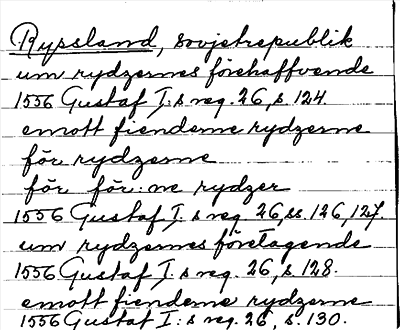 Ryssland, sovjetrepublik
um rydzernes förehaffvende
1556 Gustaf I:s reg. 26, s. 124.
emott fienderne rydzerne
för rydzerne
för för:ne rydzer
1556 Gustaf I:s reg. 26, ss. 126, 127.
um rydzernes företagende
1556 Gustaf I:s reg. 26, s. 128.
emott fienderne rydzerne
1556 Gustaf I:s reg. 26, s. 130.